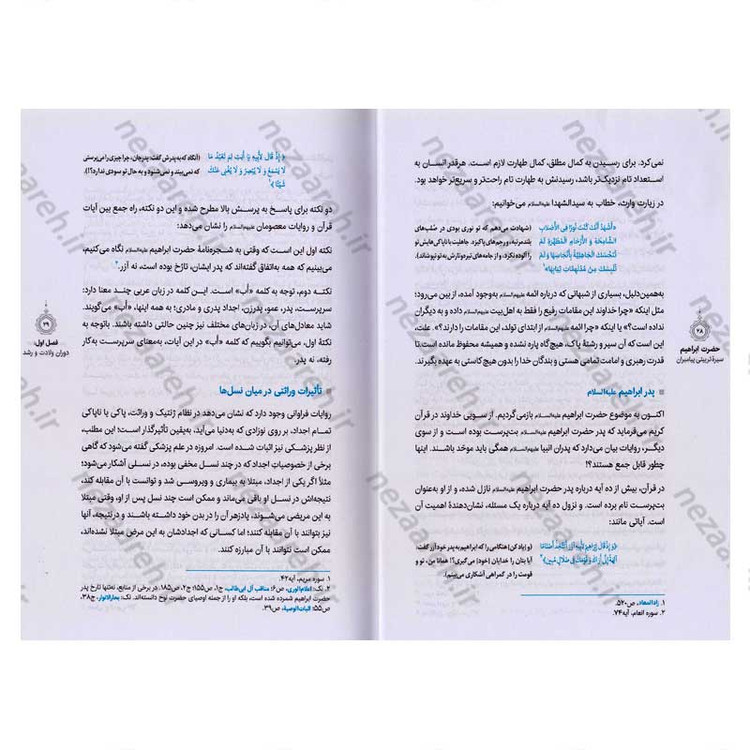 نمی‌کرد. برای رسیدن به کمال مطلق، کمال طهارت لازم است. هرقدر انسان به
استعداد تام نزدیک‌تر باشد، رسیدنش به طهارت تام راحت‌تر و سریع‌تر خواهد بود.
در زیارت وارث، خطاب به سیدالشهدا علیه‌السلام می‌خوانیم:
«أَشْهَدُ أَنَّكَ كُنْتَ نُورًا فِي الْأَصْلَابِ
الشَّامِخَةِ وَ الْأَرْحَامِ الْمُطَهَّرَةِ لَمْ
تُنَجِّسْكَ الْجَاهِلِيَّةُ بِأَنْجَاسِهَا وَ لَمْ
تُلْبِسْكَ مِنْ مُدْلَهِمَّاتِ ثِيَابِهَا»۱
(شهادت می‌دهم که تو نوری بودی در صُلب‌های
بلندمرتبه و رحم‌های پاکیزد. جاهلیت با ناپاکی‌هایش تو
را آلوده نکرد، و از جامه‌های تیره و تارش به تو نپوشاند).
به‌همین‌دلیل، بسیاری از شبهاتی که درباره ائمه علیهم‌السلام به‌وجود آمده، از بین می‌رود؛
مثل اینکه «چرا خداوند این مقامات رفیع را فقط به اهل‌بیت علیهم‌السلام داده و به دیگران
نداده است؟» یا اینکه «چرا ائمه علیهم‌السلام از ابتدای تولد، این مقامات را دارند؟». علت،
این است که آن سیر و رشتۀ پاک، هیچ‌گاه پاره نشده و همیشه محفوظ مانده است تا
قدرت رهبری و امامت تمامی هستی و بندگان خدا را بدون هیچ کاستی به عهده بگیرند.
پدر ابراهیم علیه‌السلام
اکنون به موضوع حضرت ابراهیم علیه‌السلام بازمی‌گردیم. از سویی خداوند در قرآن
کریم می‌فرماید که پدر حضرت ابراهیم علیه‌السلام بت‌پرست بوده است و از سوی
دیگر، روایات بیان می‌دارد که پدران انبیا علیهم‌السلام همگی باید موحد باشند. اینها
چطور قابل جمع هستند؟!
در قرآن، بیش از ده آیه درباره پدر حضرت ابراهیم علیه‌السلام نازل شده، و از او به‌عنوان
بت‌پرست نام برده است. و نزول ده آیه درباره یک مسئله، نشان‌دهندۀ اهمیت آن
است. آیاتی مانند:
﴿وَ إِذْ قَالَ إِبْرَاهِيمُ لِأَبِيهِ آزَرَ أَتَتَّخِذُ أَصْنَامًا
آلِهَةً إِنِّي أَرَاكَ وَ قَوْمَكَ فِي ضَلَالٍ مُبِينٍ﴾۲
(و (یاد کن) هنگامی را که ابراهیم به پدر خود آزر گفت:
آیا بتان را خدایان (خود) می‌گیری؟! همانا من، تو و
قومت را در گمراهی آشکاری می‌بینم).
۱. زادالمعاد، ص۵۲۰.
۲. سوره انعام، آیه۷۴.
۲۸
حضرت ابراهیم
سیرۀ تربیتی پیامبران
﴿إِذْ قَالَ لِأَبِيهِ يَا أَبَتِ لِمَ تَعْبُدُ مَا
لَا يَسْمَعُ وَ لَا يُبْصِرُ وَ لَا يُغْنِي عَنْكَ
شَيْئًا﴾۱
(آنگاه که به پدرش گفت: پدرجان، چرا چیزی را می‌پرستی
که نمی‌بیند و نمی‌شنود و به حال تو سودی ندارد؟!).
دو نکته برای پاسخ به پرسش بالا مطرح شده و این دو نکته، راه جمع بین آیات
قرآن و روایات معصومان علیهم‌السلام را نشان می‌دهد:
نکته اول این است که وقتی به شجره‌نامۀ حضرت ابراهیم علیه‌السلام نگاه می‌کنیم،
می‌بینیم که همه به‌اتفاق گفته‌اند که پدر ایشان، تارَخ بوده است، نه آزر.۲
نکته دوم، توجه به کلمه «أب» است. این کلمه در زبان عربی چند معنا دارد:
سرپرست، پدر، عمو، پدرزن، اجداد پدری و مادری؛ به همه اینها، «أب» می‌گویند.
شاید معادل‌های آن، در زبان‌های مختلف نیز چنین حالتی داشته باشند. باتوجه به
نکتۀ اول، می‌توانیم بگوییم که کلمه «أب» در این آیات، به‌معنای سرپرست به‌کار
رفته، نه پدر.
تأثیرات وراثتی در میان نسل‌ها
روایات فراوانی وجود دارد که نشان می‌دهد در نظام ژنتیک و وراثت، پاکی یا ناپاکی
تمام اجداد، بر روی نوزادی که به‌دنیا می‌آید، به‌یقین تأثیرگذار است؛ این مطلب،
از نظر پزشکی نیز اثبات شده است. امروزه در علم پزشکی گفته می‌شود که گاهی
برخی از خصوصیات اجداد که در چند نسل مخفی بوده، در نسلی آشکار می‌شود؛
مثلاً اگر یکی از اجداد، مبتلا به بیماری و ویروسی شد و توانست با آن مقابله کند،
نتیجه‌اش در نسل او باقی می‌ماند و ممکن است چند نسل پس از او، وقتی مبتلا
به این مریضی می‌شوند، پادزهر آن را در بدن خود داشته باشند و درنتیجه، آنها
نیز بتوانند با آن مقابله کنند؛ اما کسانی که اجدادشان به این مرض مبتلا نشده‌اند،
ممکن است نتوانند با آن مبارزه کنند.
۱. سوره مریم، آیه۴۲.
۲. نک: إعلام‌الوری، ص۶؛ مناقب آل ابی‌طالب، ج۱، ص۱۵۵؛ ج۲، ص۱۸۵. در برخی از منابع، نه‌تنها تارخ پدر
حضرت ابراهیم شمرده شده است، بلکه او را از جمله اوصیای حضرت نوح دانسته‌اند. نک: بحارالانوار، ج۳۸،
ص۵۵؛ اثبات‌الوصیة، ص۳۹.
۲۹
فصل اول:
دوران ولادت و رشد
nezaareh.ir